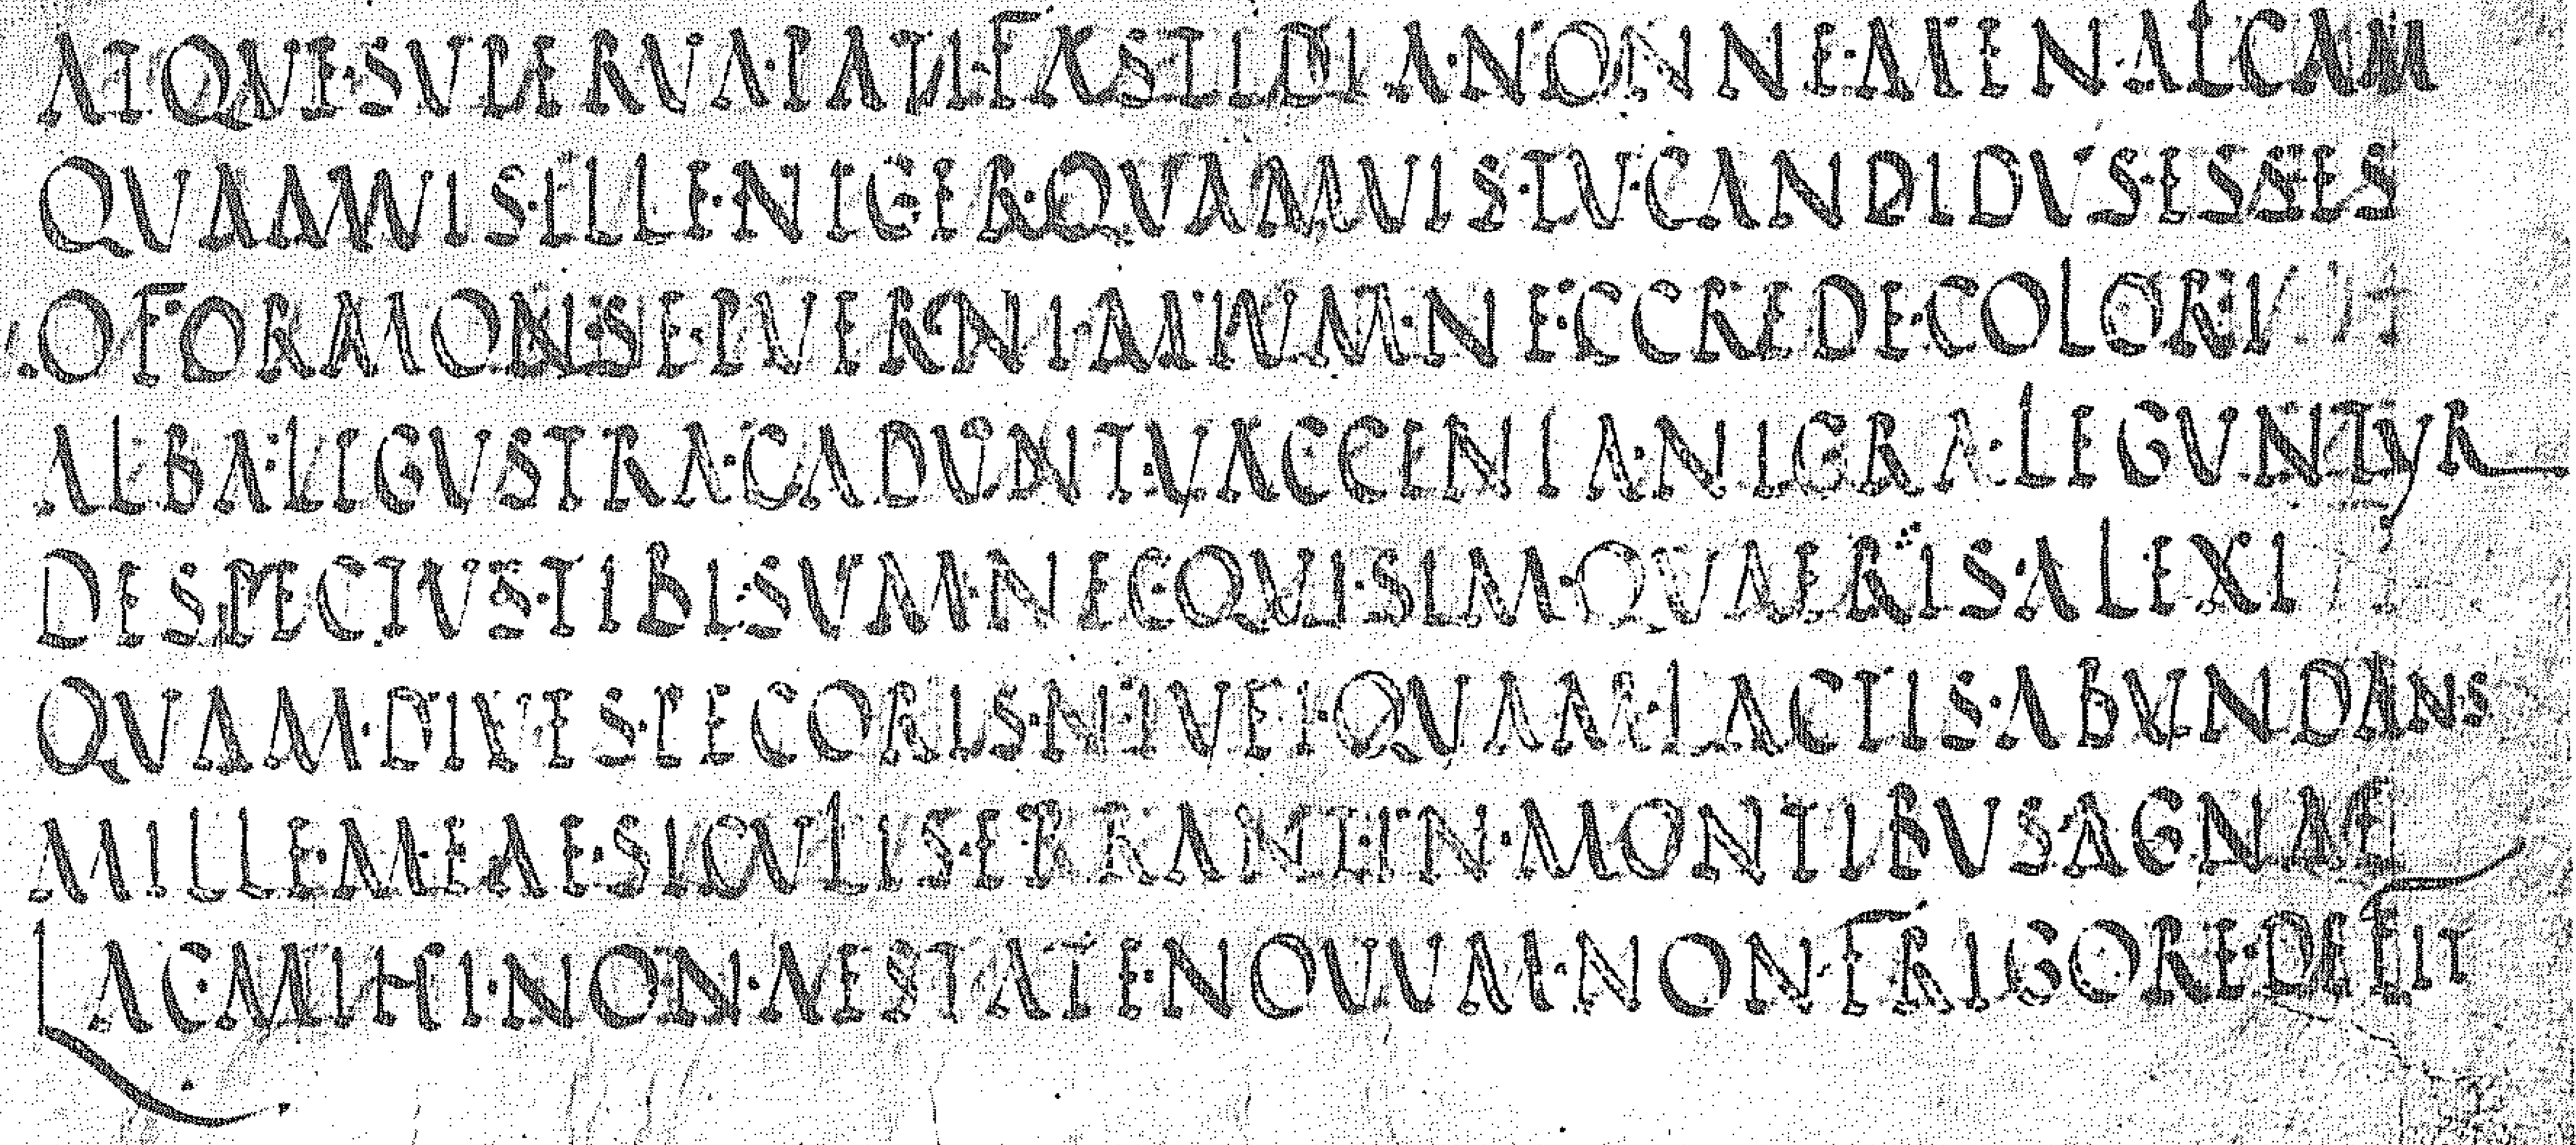 ATQUE·SUPERUA·PATI·FASTIDIA·NONNE·MENALCAM
QUAMUIS·ILLE·NIGER·QUAMUIS·TU·CANDIDUS·ESSES
O FORMONSE·PUER·NIMIUM·NE·CREDE·COLORI
ALBA·LIGUSTRA·CADUNT·UACCINIA·NIGRA·LEGUNTUR
DESPECTUS·TIBI·SUM·NEC·QUI·SIM·QUAERIS·ALEXI
QUAM·DIUES·PECORIS·NIUEI·QUAM·LACTIS·ABUNDANS
MILLE·MEAE·SICULIS·ERRANT·IN·MONTIBUS AGNAE
LAC·MIHI·NON·AESTATE·NOUUM·NON·FRIGORE·DEFIT